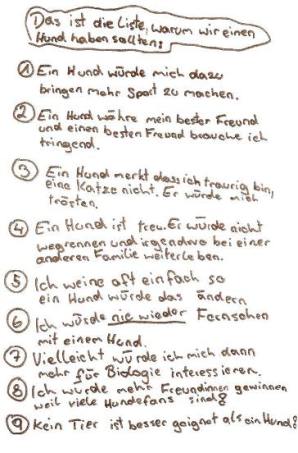 Das ist die Liste, warum wir einen
Hund haben sollten:
1 Ein Hund würde mich dazu
bringen mehr Sport zu machen.
2 Ein Hund währe mein bester Freund
und einen besten Freund brauche ich
tringend.
3 Ein Hund merkt dass ich traurig bin,
eine Katze nicht. Er würde mich
trösten.
4 Ein Hund ist treu. Er würde nicht
wegrennen und irgendwo bei einer
anderen Familie weiterleben.
5 Ich weine oft einfach so
ein Hund würde das ändern
6 Ich würde nie wieder Fernsehen
mit einem Hund.
7 Vielleicht würde ich mich dann
mehr für Biologie interessieren.
8 Ich würde mehr Freundinnen gewinnen
weil viele Hundefans sind!
9 Kein Tier ist besser geignet als ein Hund!